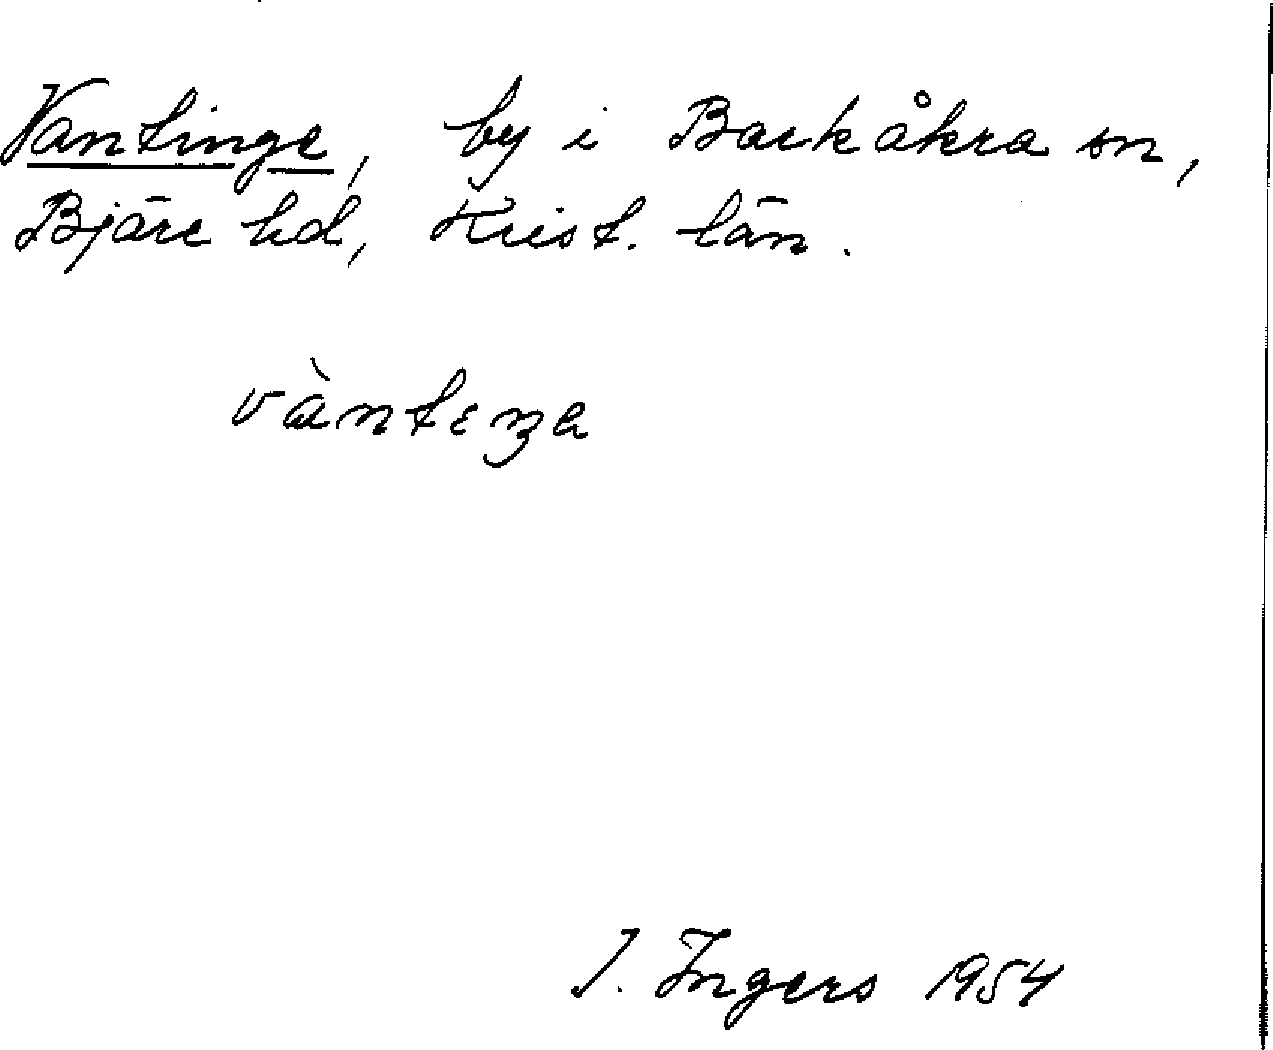 Vantinge, by i Barkåkra sn,
Bjäre hd, Krist. län.
vàntɛŋa
I. Ingers 1954